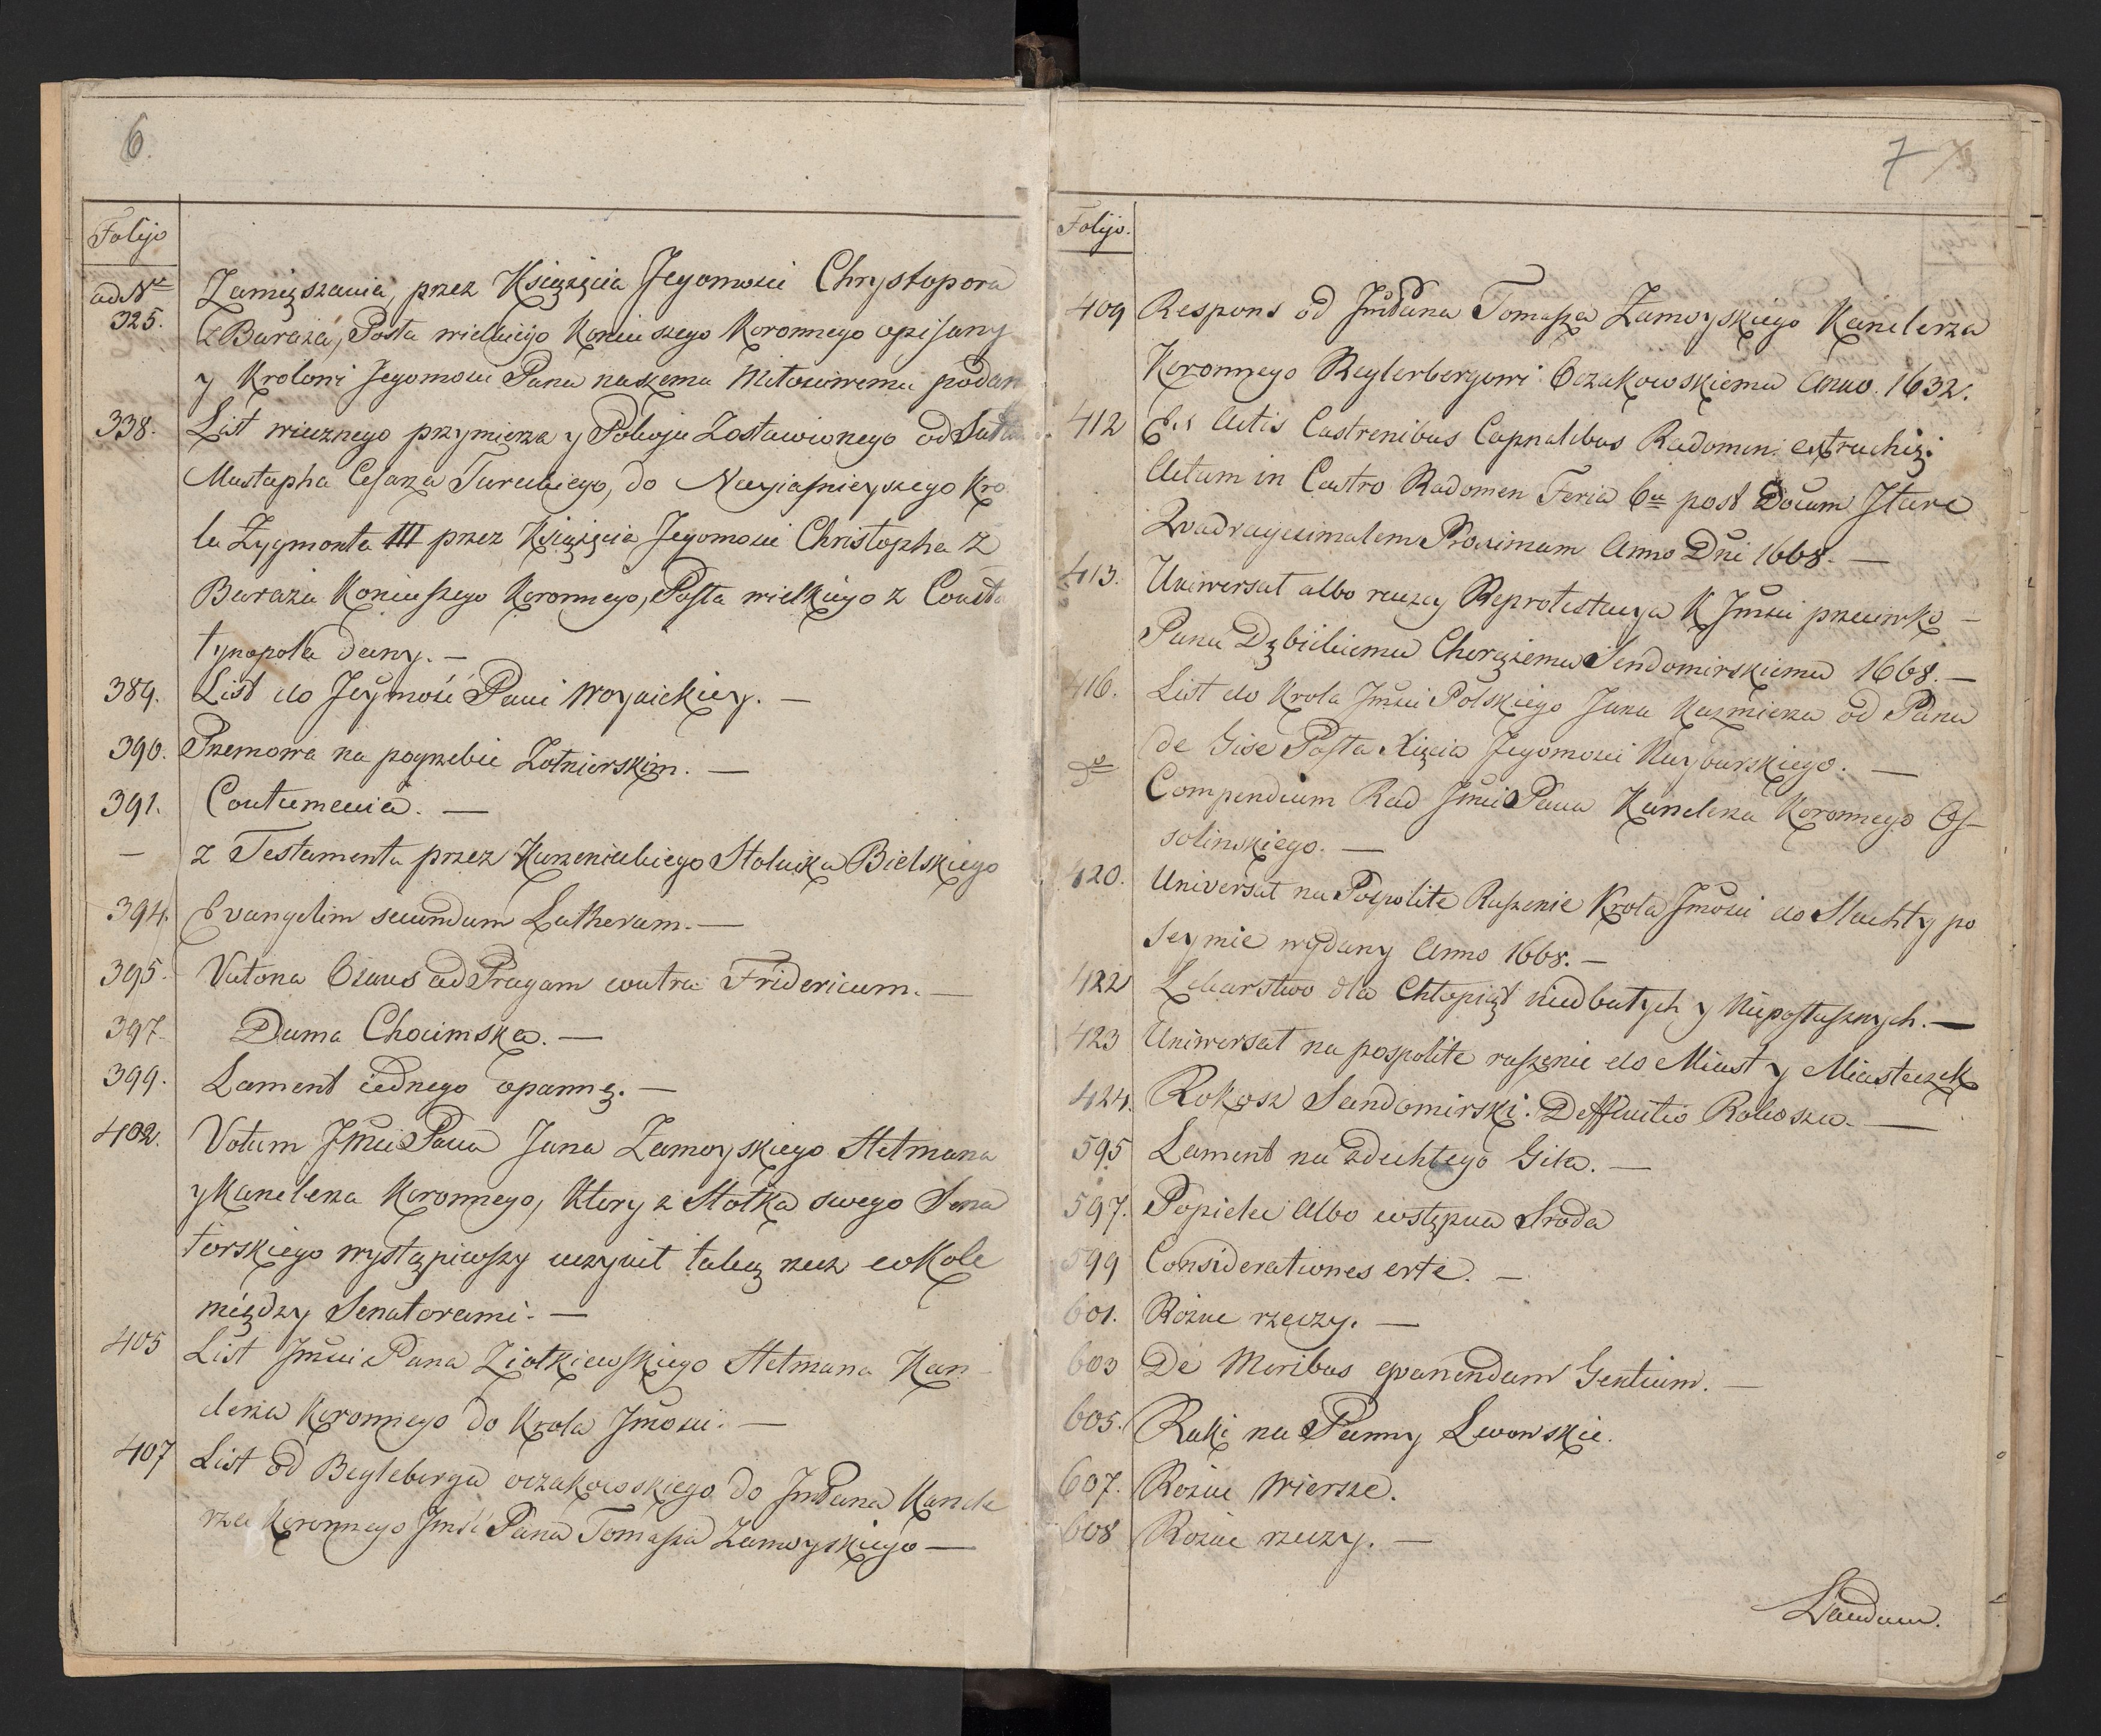 6.
Folijo
ad Nr
325.
Zamięszania, przez Xsiążęcia Jegomości Chrystopora
z Baraża, Posła wielkiego Koniuszego Koronnego opisany
y Krolowi Jegomości Panu naszemu Miłosciwemu podan
338. List wiecznego przymierza y Pokoju Zostawionego od Sułta
Mustapha Cesarza Tureckiego, do Nayjaśnieyszego Kro
la Zygmonta III przez Xsiążęcia Jegomości Christopha z
Baraża Koniuszego Koronnego, Posła wielkiego z Consta
tynopola dany. —
389. List do Jeymość Pani Woynickiey. —
390. Przemowa na pogrzebie Żołnierskim. —
391. Contumecia. —
— z Testamentu przez Kurzenieckiego Stolnika Bielskiego
394. Evangelim secundum Lutherum. —
395. Vutona Cæsaris ad Pragam contra Fridericum. —
397. Duma Chocimska. —
399. Lament iednego o pannę. —
402. Votum Jmci Pana Jana Zamoyskiego Hetmana
y Kanclerza Koronnego, Ktory z Stołka swego Sena
torskiego wystąpiwszy uczynił taką rzecz w Kole
między Senatorami. —
405 List Jmci Pana Ziołkiewskiego Hetmana Kan
clerza Koronnego do Krola Jmości. —
407 List od Beglebergu oczakowskiego do Jm Pana Kancle
rza Koronnego Jmść Pana Tomasza Zamoyskiego —
7
Folijo.
409 Respons od Jm Pana Tomasza Zamoyskiego Kanclerza
Koronnego Beglerbergowi Oczakowskiemu Anno. 1632.
412 Ex Actis Castrenibus Capnalibus Radomen: extrachię:
Actum in Castro Radomen Feria 6ta post Docum Jtare
Quadragesimalem Proximum Anno Dni 1668. —
413. Uniwersał albo raczey Reprotestacya K Jmści przeciwko —
Panu Dębickiemu Chorążemu Sendomirskiemu 1668. —
416. List do Krola Jmści Polskiego Jana Kazmierza od Pana
de Gise Posła Xięcia Jegomosci Nayburskiego. —
do Compendium Rad Jmci Pana Kanclerza Koronnego Os-
solinskiego. —
420. Universał na Pospolite Ruszenie Krola Jmości do Slachty po
Seymie wydany Anno 1668. —
422 Lekarstwo dla Chłopiąt niedbałych y Niеposłusznych. —
423 Uniwersał na pospolite ruszenie do Miast y Miasteczek
424. Rokosz Sandomirski. Deffinitio Rokoszu. —
595 Lament na zdechłego Gila. —
597. Popielec Albo wstępna Sroda
599 Considerationes erte. —
601. Rożne rzeczy. —
603 De Moribus quarundam Gentium. —
605. Raki na Panny Lwowskie.
607. Rożne Wiersze.
608 Rożne rzeczy. —
Laudum.